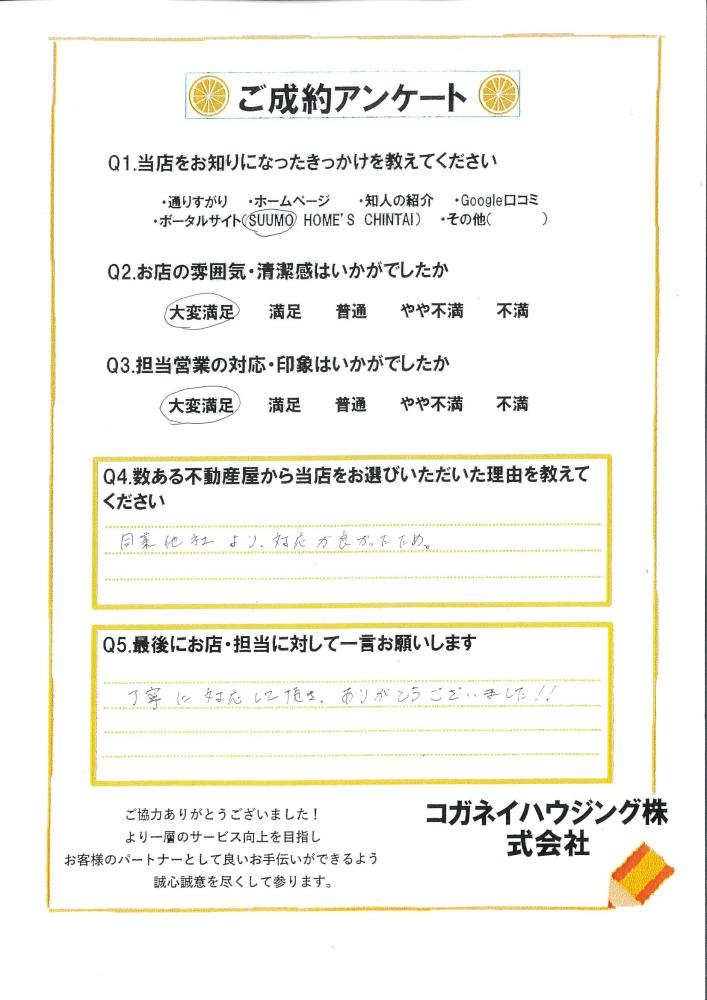 ご成約アンケート
Q1.当店をお知りになったきっかけを教えてください
・通りすがり ・ホームページ ・知人の紹介 ・Google口コミ
・ポータルサイト(SUUMO HOME'S CHINTAI) ・その他( )
Q2.お店の雰囲気・清潔感はいかがでしたか
大変満足 満足 普通 やや不満 不満
Q3.担当営業の対応・印象はいかがでしたか
大変満足 満足 普通 やや不満 不満
Q4.数ある不動産屋から当店をお選びいただいた理由を教えて
ください
同業他社より、対応が良かったため。
Q5.最後にお店・担当に対して一言お願いします
丁寧に対応して頂き、ありがとうございました!!
ご協力ありがとうございました!
より一層のサービス向上を目指し
お客様のパートナーとして良いお手伝いができるよう
誠心誠意を尽くして参ります。
コガネイハウジング株
式会社